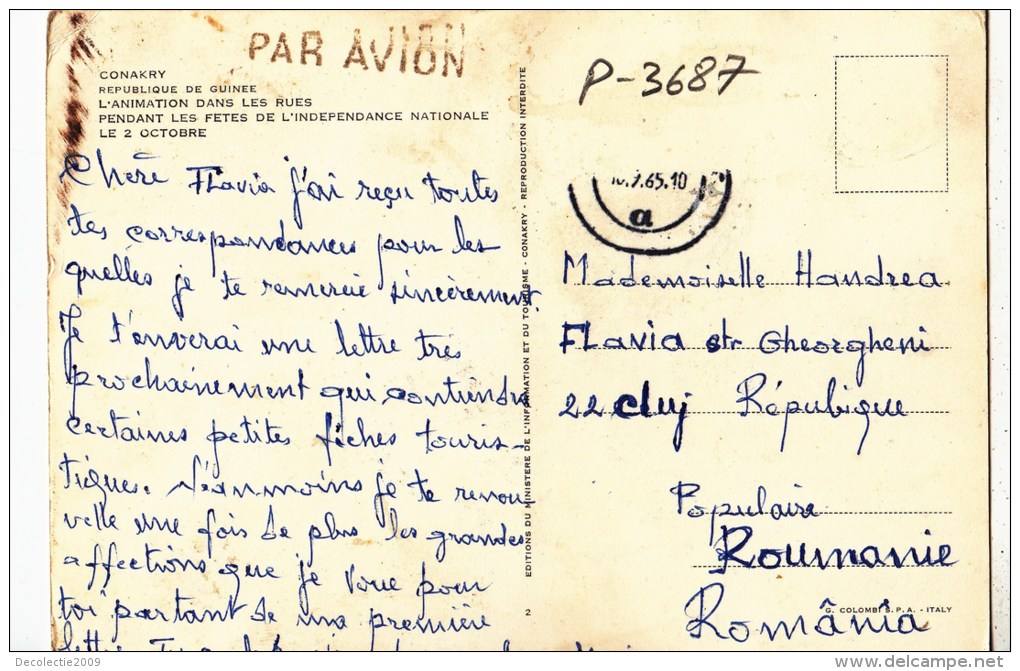 PAR AVION
CONAKRY
REPUBLIQUE DE GUINEE
L'ANIMATION DANS LES RUES
PENDANT LES FETES DE L'INDEPENDANCE NATIONALE
LE 2 OCTOBRE
Chère Flavia j'ai reçu toutes
tes correspondances pour les
quelles je te remercie sincèrement.
Je t'enverai une lettre très
prochainement qui contiendra
certaines petites fiches touris-
tiques. Néanmoins je te renou-
velle une fois de plus les grandes
affections que je voue pour
toi partant de ma première
lettre
EDITIONS DU MINISTERE DE L'INFORMATION ET DU TOURISME - CONAKRY - REPRODUCTION INTERDITE
2
P-3687
65.10
a
Mademoiselle Handrea
Flavia str Gheorgheni
22 Cluj Répubique
Populaire
Roumanie
România
G. COLOMBI S.P.A. - ITALY
Decolectie2009
delcampe.net